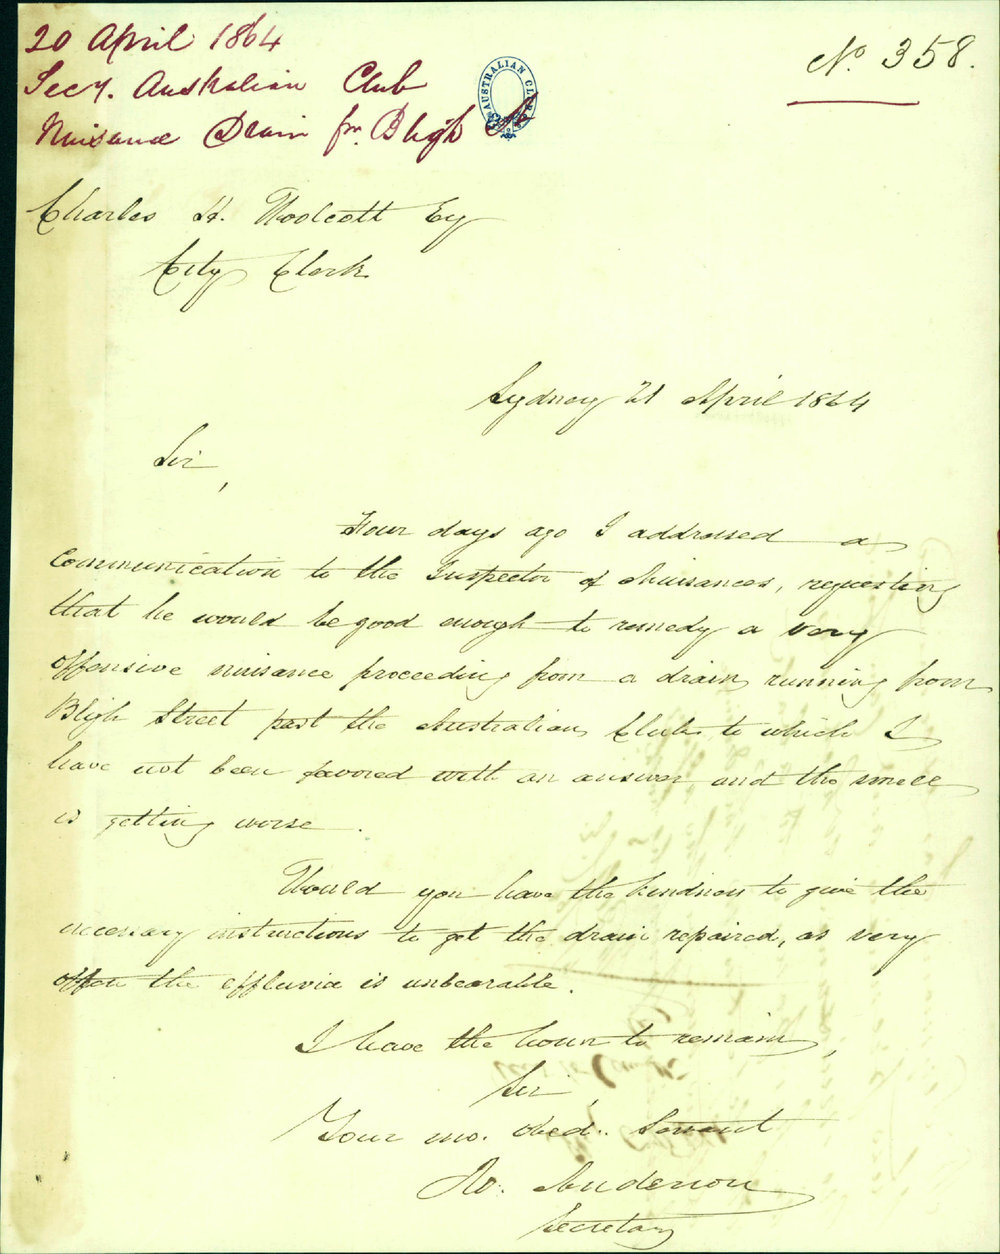 20 April 1864
Secy. Australian Club
Nuisance Drain fm. Bligh St
No. 358.
AUSTRALIAN CLUB
Charles H. Woolcott Esq
City Clerk
Sydney 21 April 1864
Sir,
Four days ago I addressed a
communication to the Inspector of Nuisances, requesting
that he would be good enough to remedy a very
offensive nuisance proceeding from a drain running from
Bligh Street past the Australian Club to which I
have not been favored with an answer and the smell
is getting worse.
Would you have the kindness to give the
necessary instructions to get the drain repaired, as very
often the effluvia is unbearable.
I have the honor to remain,
Sir,
Your mo. obed. Servant
Anderson
Secretary